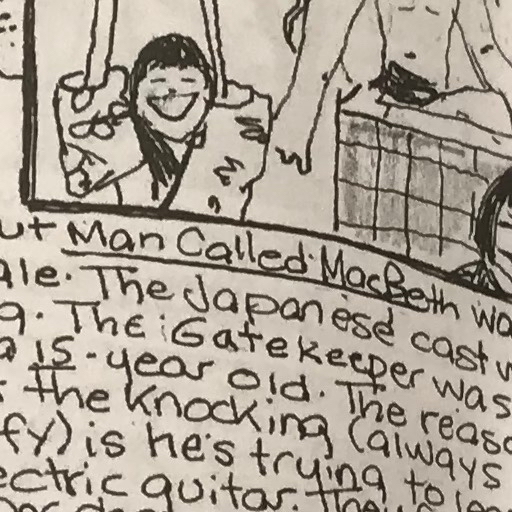 ut Man Called MacBeth wa
ale. The Japanese cast w
g. The Gatekeeper was
a 15-year old. The reaso
the knocking (always
fy) is he's trying to lea
ectric guitar. They